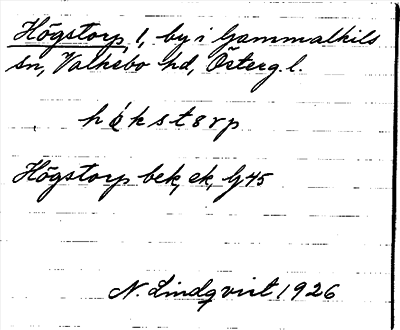 Högstorp, 1, by i Gammalkils
sn, Valkebo hd, Österg. l.
hökstørp
Högstorp bek, ek, G45
N. Lindqvist 1926